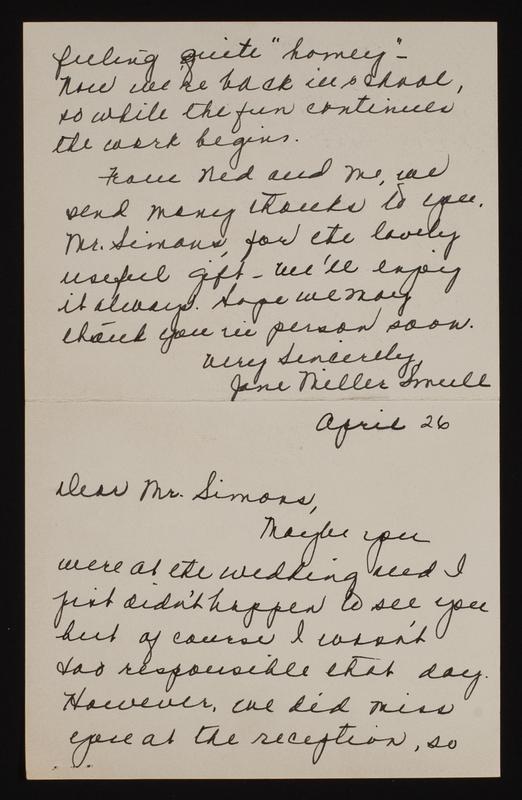 feeling quite "homey" -
Now we're back in school,
so while the fun continues
the work begins.
From Ned and me, we
send many thanks to you,
Mr. Simons, for the lovely
useful gift - we'll enjoy
it always. Hope we may
thank you in person soon.
Very Sincerely,
Jane Miller Smull
April 26
Dear Mr. Simons,
Maybe you
were at the wedding and I
just didn't happen to see you
but of course I wasn't
too responsible that day.
However, we did miss
you at the reception, so